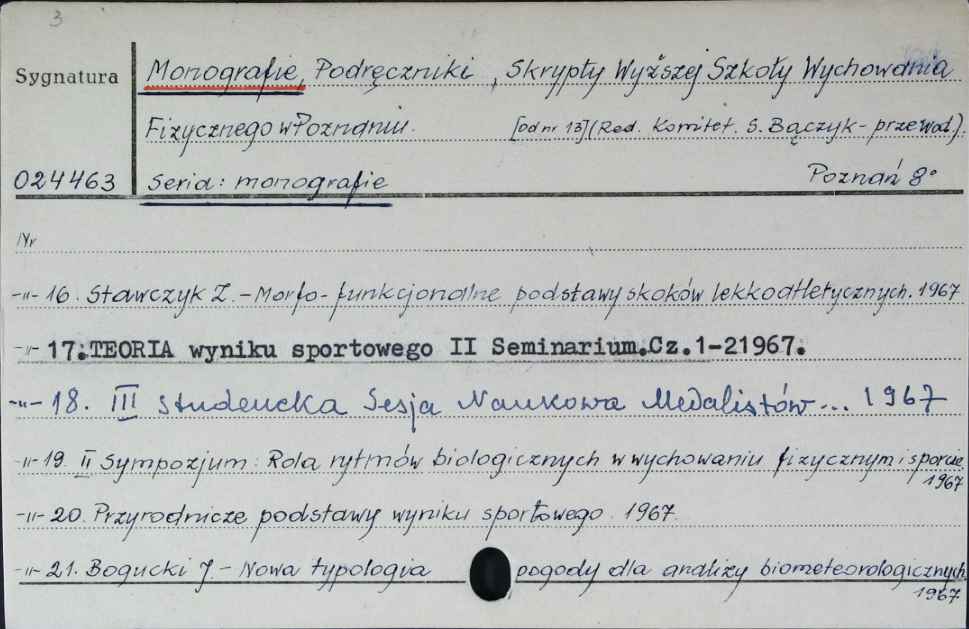 3
Sygnatura
Monografie, Podręczniki, Skrypty Wyższej Szkoły Wychowania
Fizycznego w Poznaniu. [od nr 13] (Red. Komitet. S. Bączyk - przewod).
024463 Seria: monografie Poznań 8°
Nr
-"- 16. Stawczyk Z. - Morfo-funkcjonalne podstawy skoków lekkoatletycznych. 1967
-"- 17.TEORIA wyniku sportowego II Seminarium.Cz.1-21967.
-"- 18. III Studencka Sesja Naukowa Medalistów... 1967
-"- 19. II Sympozjum: Rola rytmów biologicznych w wychowaniu fizycznym i sporcie
1967
-"- 20. Przyrodnicze podstawy wyniku sportowego. 1967.
-"- 21. Bogucki J. - Nowa typologia pogody dla analizy biometeorologicznych.
1967